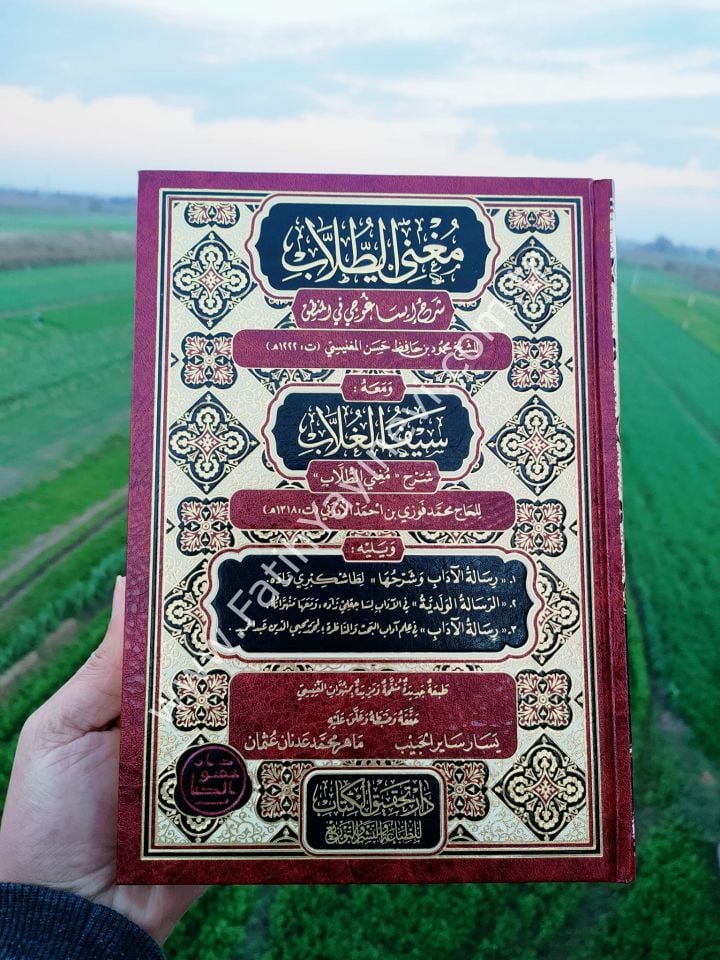 مُغْنِي الطُّلَّاب
شَرْحُ إِيسَاغُوجِي فِي المَنْطِق
الشَّيْخ مَحْمُود بْن حَافِظ حَسَن المَغْنِيسِيّ (ت: ١٢٢٢هـ)
وَمَعَهُ :
سَيْفُ الغُلَّاب
شَرْح "مُغْنِي الطُّلَّاب"
لِلحَاج مُحَمَّد فَوْزِي بْن أَحْمَد (ت: ١٣١٨هـ)
وَيَلِيْهِ :
١. "رِسَالَةُ الآدَابِ وَشَرْحُهَا" لِطَاشْكُبْرِي زَادَهْ.
٢. "الرِّسَالَةُ الوَلَدِيَّةُ" فِي الآدَابِ لِسَاجَقْلِي زَادَه، وَمَعَهَا
٣. "رِسَالَةُ الآدَاب" فِي عِلْمِ آدَابِ البَحْثِ وَالمُنَاظَرَةِ : لِمُحَمَّد مُحْيِي الدِّين عَبْد الحَمِيد.
طَبْعَةٌ جَدِيدَةٌ مُنَقَّحَةٌ وَمَزِيدَةٌ
حَقَّقَهُ وَضَبَطَهُ وَعَلَّقَ عَلَيْهِ
يَسَار سَايِر الحَبِيب مَاهِر مُحَمَّد عَدْنَان عُثْمَان
دَار تَحْقِيق الكِتَاب
لِلطِّبَاعَةِ وَالنَّشْرِ وَالتَّوْزِيعِ
www.Fatihyayinevi.com